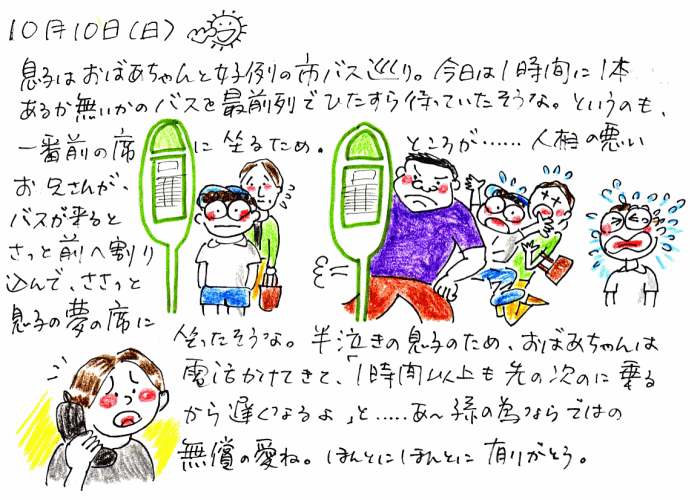 10月10日(日)
息子はおばあちゃんと好例の市バス巡り。今日は1時間に1本
あるか無いかのバスを最前列でひたすら待っていたそうな。というのも、
一番前の席に坐るため。ところが……人相の悪い
お兄さんが、
バスが来ると
さっと前へ割り
込んで、ささっと
息子の夢の席に
坐ったそうな。半泣きの息子のため、おばあちゃんは
電話かけてきて、「1時間以上も先の次のに乗る
から遅くなるよ」と……あ〜孫の為ならではの
無償の愛ね。ほんとにほんとに有りがとう。